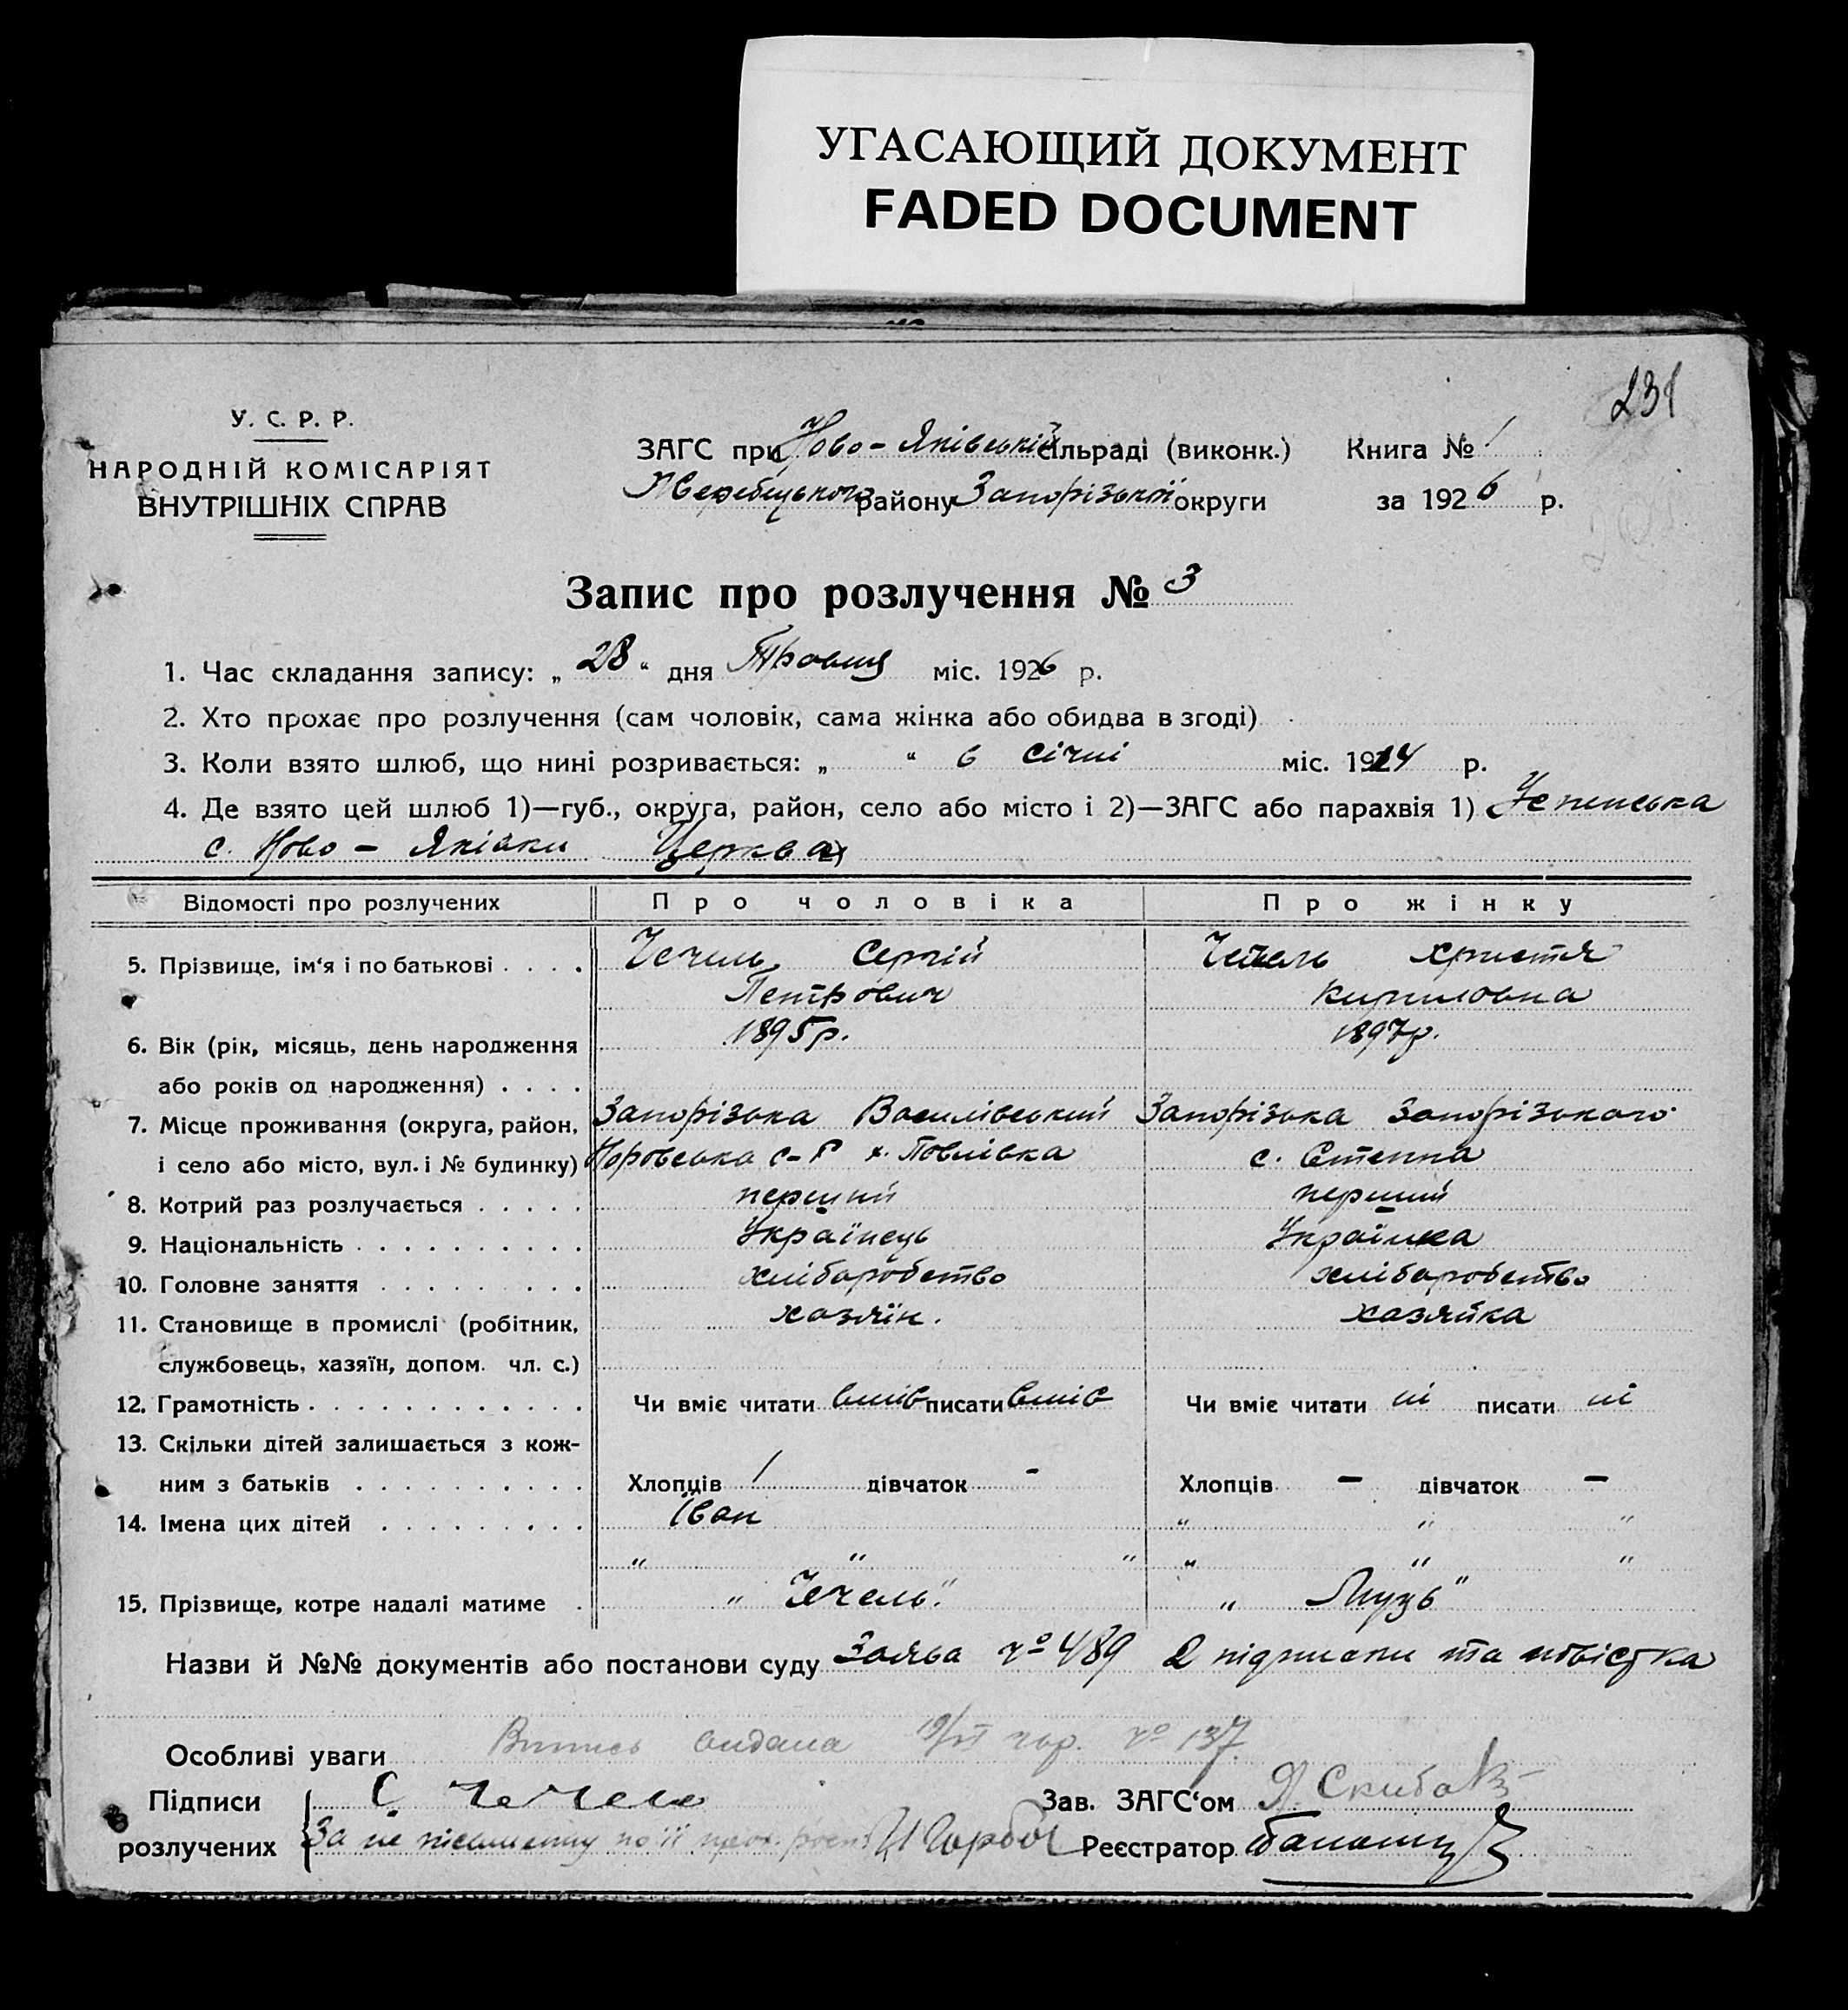 УГАСАЮЩИЙ ДОКУМЕНТ
FADED DOCUMENT
231
У. С. Р. Р.
НАРОДНІЙ КОМІСАРІЯТ
ВНУТРІШНІХ СПРАВ
ЗАГС при Ново-Яківській сільраді (виконк.) Книга № 1
Жеребецького району Запорізької округи за 1926 р.
Запис про розлучення № 3
1. Час складання запису: „ 28 “ дня Травня міс. 1926 р.
2. Хто прохає про розлучення (сам чоловік, сама жінка або обидва в згоді)
3. Коли взято шлюб, що нині розривається: „ “ в січні міс. 1914 р.
4. Де взято цей шлюб 1)—губ., округа, район, село або місто і 2)—ЗАГС або парахвія 1) Успенська
с. Ново - Яківки Церква
Відомості про розлучених Про чоловіка Про жінку
5. Прізвище, ім‘я і по батькові . . . . Чечель Сергій Чечель Христя
Петрович Кириловна
6. Вік (рік, місяць, день народження 1895р. 1897р.
або років од народження) . . . .
7. Місце проживання (округа, район, Запорізька Василівський Запорізька Запорізького
і село або місто, вул. і № будинку) с-р х. Павлівка с. Степна
8. Котрий раз розлучається . . . . . перший перший
9. Національність . . . . . . . . . . Українець Українка
10. Головне заняття . . . . . . . . . хліборобство хліборобство
11. Становище в промислі (робітник, хазяїн. хазяйка
службовець, хазяїн, допом. чл. с.)
12. Грамотність . . . . . . . . . . . . Чи вміє читати вміє писати вміє Чи вміє читати ні писати ні
13. Скільки дітей залишається з кож-
ним з батьків . . . . . . . . . . Хлопців 1 дівчаток - Хлопців — дівчаток —
14. Імена цих дітей . . . . . . . . . Іван " " "
" " " " " "
15. Прізвище, котре надалі матиме . „ Чечель." „ Лузь"
Назви й №№ документів або постанови суду Заява № 489 2 підписки та повістка
Особливі уваги Випись видана № 137
Підписи С. Чечель Зав. ЗАГС‘ом Скиба
розлучених За не письменну по її Горбач Реєстратор